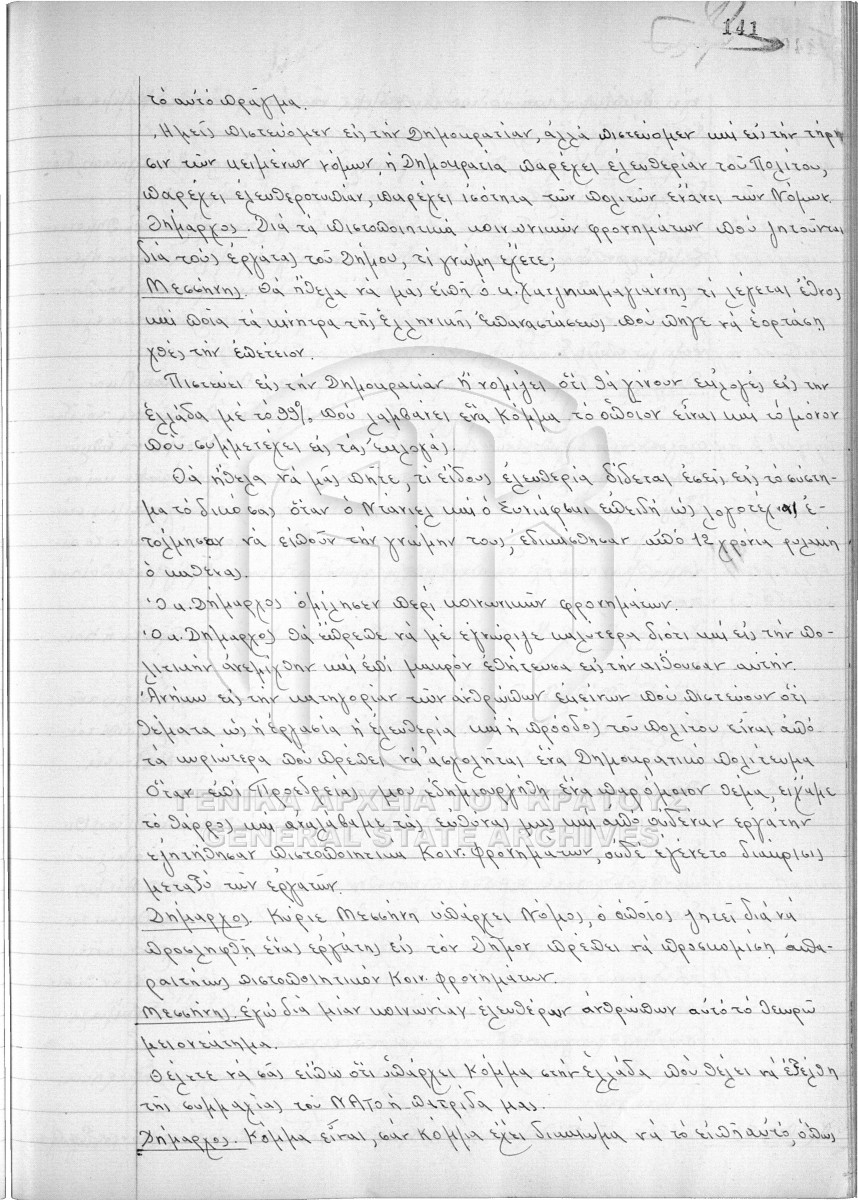 141
τό αὐτό πρᾶγμα.
Ἡμεῖς πιστεύομεν εἰς τήν Δημοκρατίαν, ἀλλά πιστεύομεν καί εἰς τήν τήρη
σιν τῶν κειμένων νόμων, ἡ Δημοκρατία παρέχει ἐλευθερίαν τοῦ Πολίτου,
παρέχει ἐλευθεροτυπίαν, παρέχει ἰσότητα τῶν πολιτῶν ἔναντι τῶν Νόμων.
Δήμαρχος. Διά τά πιστοποιητικά κοινωνικῶν φρονημάτων πού ζητοῦνται
διά τούς ἐργάτας τοῦ Δήμου, τί γνώμη ἔχετε;
Μεσσήνης. Θά ἤθελα νά μᾶς εἰπῆ ὁ κ. Χατζηκαμαγιάννης τί λέγεται ἔθνος
καί ποῖα τά κίνητρα τῆς Ἑλληνικῆς Ἐπαναστάσεως πού πῆγε νά ἑορτάση
χθές τήν ἐπέτειον.
Πιστεύει εἰς τήν Δημοκρατίαν ἤ νομίζει ὅτι θά γίνουν ἐκλογές εἰς τήν
Ἑλλάδα μέ τό 99% πού λαμβάνει ἕνα Κόμμα τό ὁποῖον εἶναι καί τό μόνον
πού συμμετέχει εἰς τάς ἐκλογάς.
Θά ἤθελα νά μᾶς πῆτε, τί εἴδους ἐλευθερία δίδεται ἐσεῖς εἰς τό σύστη-
μα τό δικό σας ὅταν ὁ Ντάνιελ καί ὁ Σινιάφσκι ἐπειδή ὡς λογοτέχναι ἐ-
τόλμησαν νά εἰποῦν τήν γνώμην τους, ἐδικάσθησαν ἀπό 12 χρόνια φυλακή
ὁ καθένας.
Ὁ κ. Δήμαρχος ὁμίλησεν περί κοινωνικῶν φρονημάτων.
Ὁ κ. Δήμαρχος θά ἔπρεπε νά μέ ἐγνώριζε καλύτερα διότι καί εἰς τήν πο-
λιτικήν ἀνεμίχθην καί ἐπί μακρόν ἐθήτευσα εἰς τήν αἴθουσαν αὐτήν.
Ἀνήκω εἰς τήν κατηγορίαν τῶν ἀνθρώπων ἐκείνων πού πιστεύουν ὅτι
θέματα ὡς ἡ ἐργασία ἡ ἐλευθερία καί ἡ πρόοδος τοῦ πολίτου εἶναι ἀπό
τά κυριώτερα πού πρέπει νά ἀσχολῆται ἕνα Δημοκρατικό πολίτευμα
Ὅταν ἐπί Προεδρείας μου ἐδημιουργήθη ἕνα παρόμοιον θέμα, εἴχαμε
τό θάρρος καί ἀναλάβαμε τάς εὐθύνας μας καί ἀπό οὐδέναν ἐργάτην
ἐζητήθησαν πιστοποιητικά Κοιν. Φρονημάτων, οὐδέ ἐγένετο διάκρισις
μεταξύ τῶν ἐργατῶν.
Δήμαρχος. Κύριε Μεσσήνη ὑπάρχει Νόμος, ὁ ὁποῖος ζητεῖ διά νά
προσληφθῆ ἕνας ἐργάτης εἰς τόν Δῆμον πρέπει νά προσκομίση ἀπα-
ραιτήτως πιστοποιητικόν Κοιν. φρονημάτων.
Μεσσήνης. Ἐγώ διά μίαν κοινωνίαν ἐλευθέρων ἀνθρώπων αὐτό τό θεωρῶ
μειονέκτημα.
Θέλετε νά σᾶς εἴπω ὅτι ὑπάρχει Κόμμα στήν Ἑλλάδα πού θέλει νά ἐξέλθη
τῆς συμμαχίας τοῦ ΝΑΤΟ ἡ πατρίδα μας.
Δήμαρχος. Κόμμα εἶναι, σάν κόμμα ἔχει δικαίωμα νά τό εἰπῆ αὐτό, ὅπως
ΓΕΝΙΚΑ ΑΡΧΕΙΑ ΤΟΥ ΚΡΑΤΟΥΣ
GENERAL STATE ARCHIVES